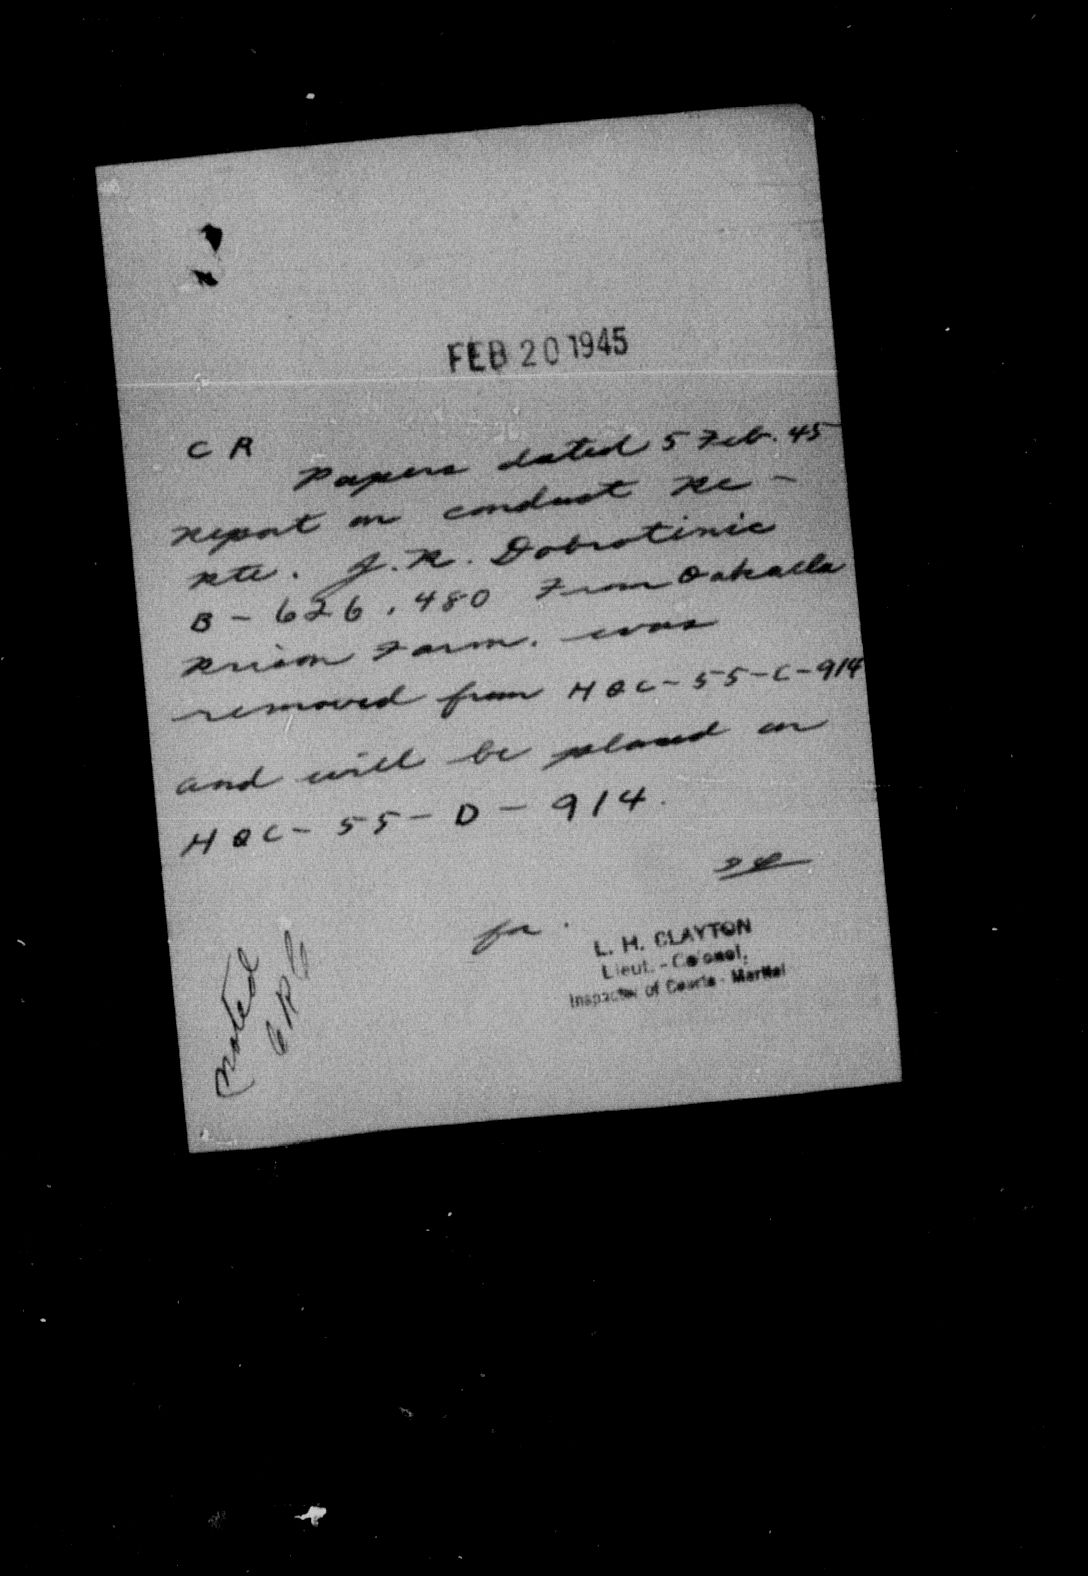 FEB 20 1945
C R
Papers dated 5 Feb. 45
Report on conduct Re -
Pte. J. R. Dobrotinic
B - 626.480 From Oakalla
Prison Farm. was
removed from HQC-55-C-914
and will be placed on
HQC-55-D-914.
for.
L. H. CLAYTON
Lieut. - Colonel,
Inspector of Courts - Martial
noted